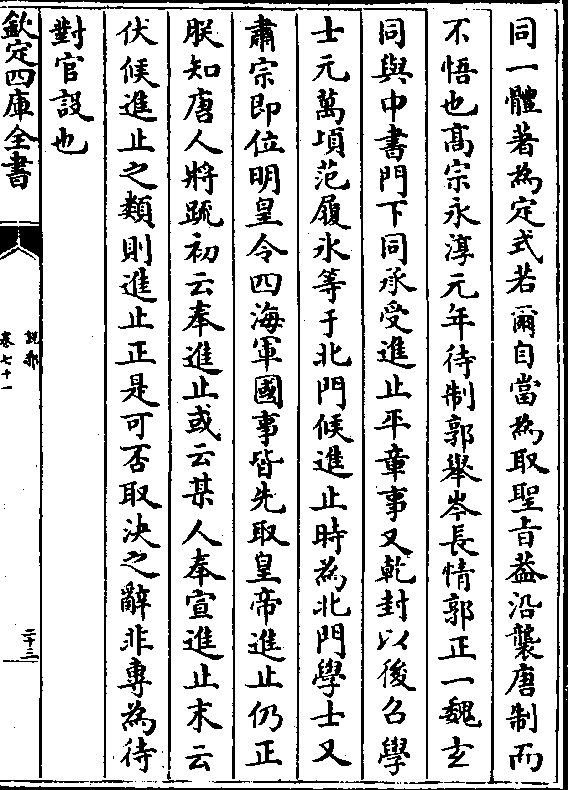 同一體著為定式若爾自當為取聖旨葢沿襲唐制而
不悟也髙宗永淳元年待制郭舉岑長情郭正一魏𤣥
同與中書門下同承受進止平章事又乾封以後召學
士元萬頃范履氷等于北門候進止時為北門學士又
肅宗即位明皇令四海軍國事皆先取皇帝進止仍正
朕知唐人將䟽初云奉進止或云某人奉宣進止末云
伏候進止之類則進止正是可否取決之辭非專為待
對官設也
欽定四庫全書
說郛
卷七十一
二十三